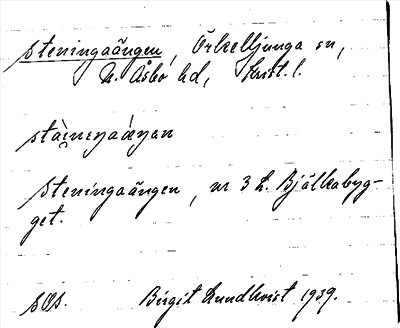 Steningaängen, Örkelljunga sn,
N. Åsbo hd, Krist. l.
Steningaängen, nr 3 L. Bjälkabyg-
get.
äga.
Birgit Lundkvist 1939.